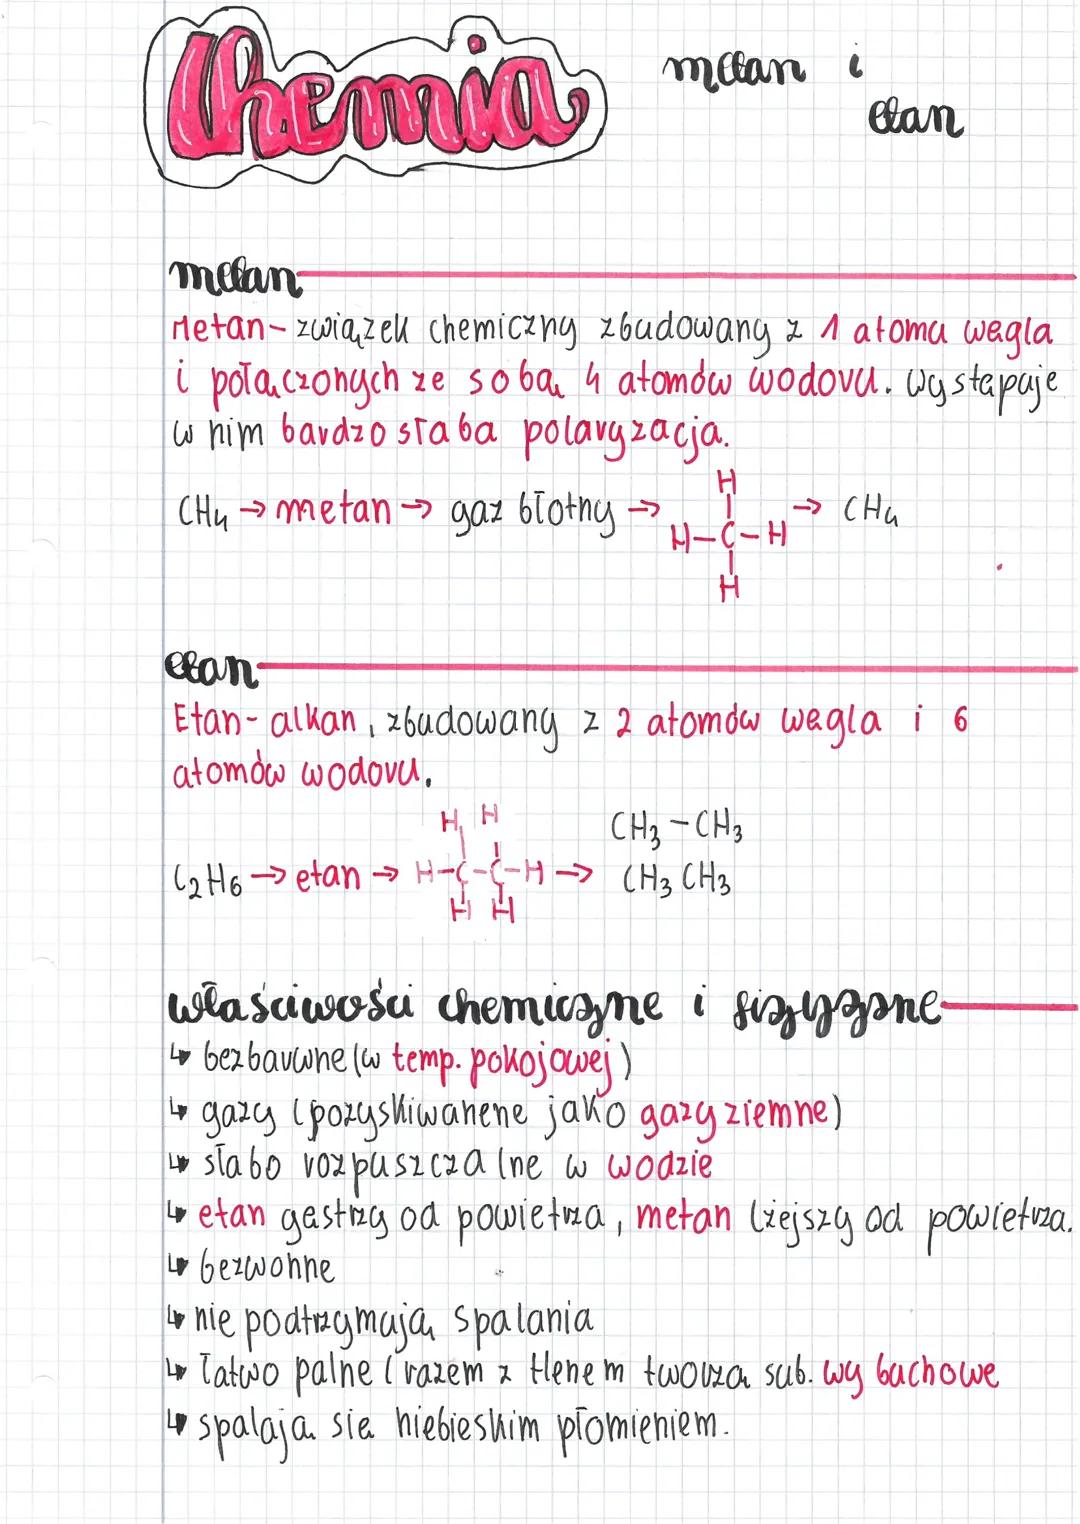 Chemia
metan i
etan
metan
Metan - związek chemiczny zbudowany z 1 atomu węgla
i połączonych ze sobą 4 atomów wodoru. Występuje
w nim bardzo słaba polaryzacja.
CH₄ → metan → gaz błotny → H H-C-H H → CH₄
etan
Etan - alkan, zbudowany z 2 atomów węgla i 6
atomów wodoru.
C₂H₆ → etan → H H H-C-C-H H H → CH₃-CH₃
CH₃ CH₃
właściwości chemiczne i fizyzzne
↳ bezbarwne (w temp. pokojowej)
↳ gazy (pozyskiwanene jako gazy ziemne)
↳ słabo rozpuszczalne w wodzie
↳ etan gęstrzy od powietrza, metan lżejszy od powietrza.
↳ bezwonne
↳ nie podtrzymują spalania
↳ łatwo palne (razem z tlenem tworzą sub. wybuchowe
↳ spalają się niebieskim płomieniem.